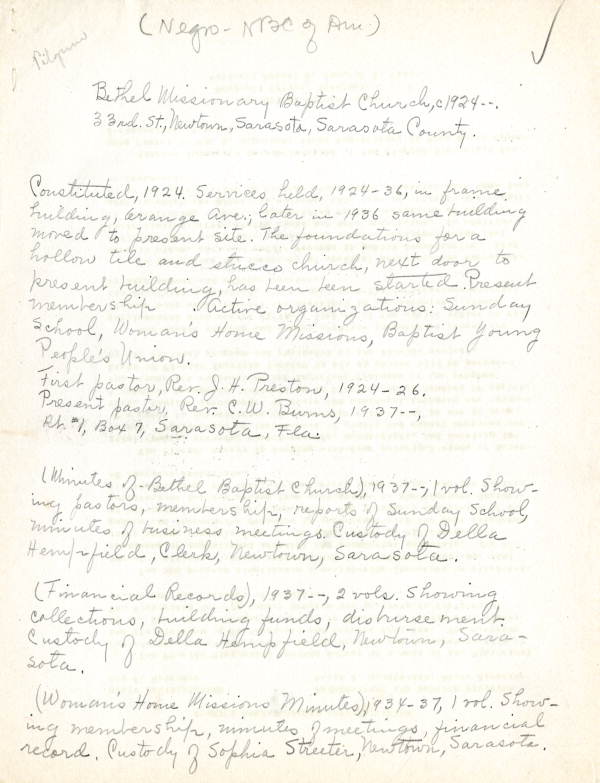 (Negro - NBC of Am.)
Pilgrim
Bethel Missionary Baptist Church, c1924--.
33rd. St., Newtown, Sarasota, Sarasota County.
Constituted, 1924. Services held, 1924-36, in frame
building, Orange Ave.; later in 1936 same building
moved to present site. The foundations for a
hollow tile and stucco church, next door to
present building, has been been started. Present
membership . Active organizations: Sunday
School, Woman's Home Missions, Baptist Young
People's Union.
First pastor, Rev. J. H. Preston, 1924-26.
Present pastor, Rev. C. W. Burns, 1937--,
Rt. #1, Box 7, Sarasota, Fla.
(Minutes of Bethel Baptist Church), 1937--, 1 vol. Show-
ing pastors, membership, reports of Sunday School,
minutes of business meetings. Custody of Della
Hempfield, Clerk, Newtown, Sarasota.
(Financial Records), 1937--, 2 vols. Showing
collections, building funds, disbursement.
Custody of Della Hempfield, Newtown, Sara-
sota.
(Woman's Home Missions Minutes), 1934-37, 1 vol. Show-
ing membership, minutes of meetings, financial
record. Custody of Sophia Streeter, Newtown, Sarasota.